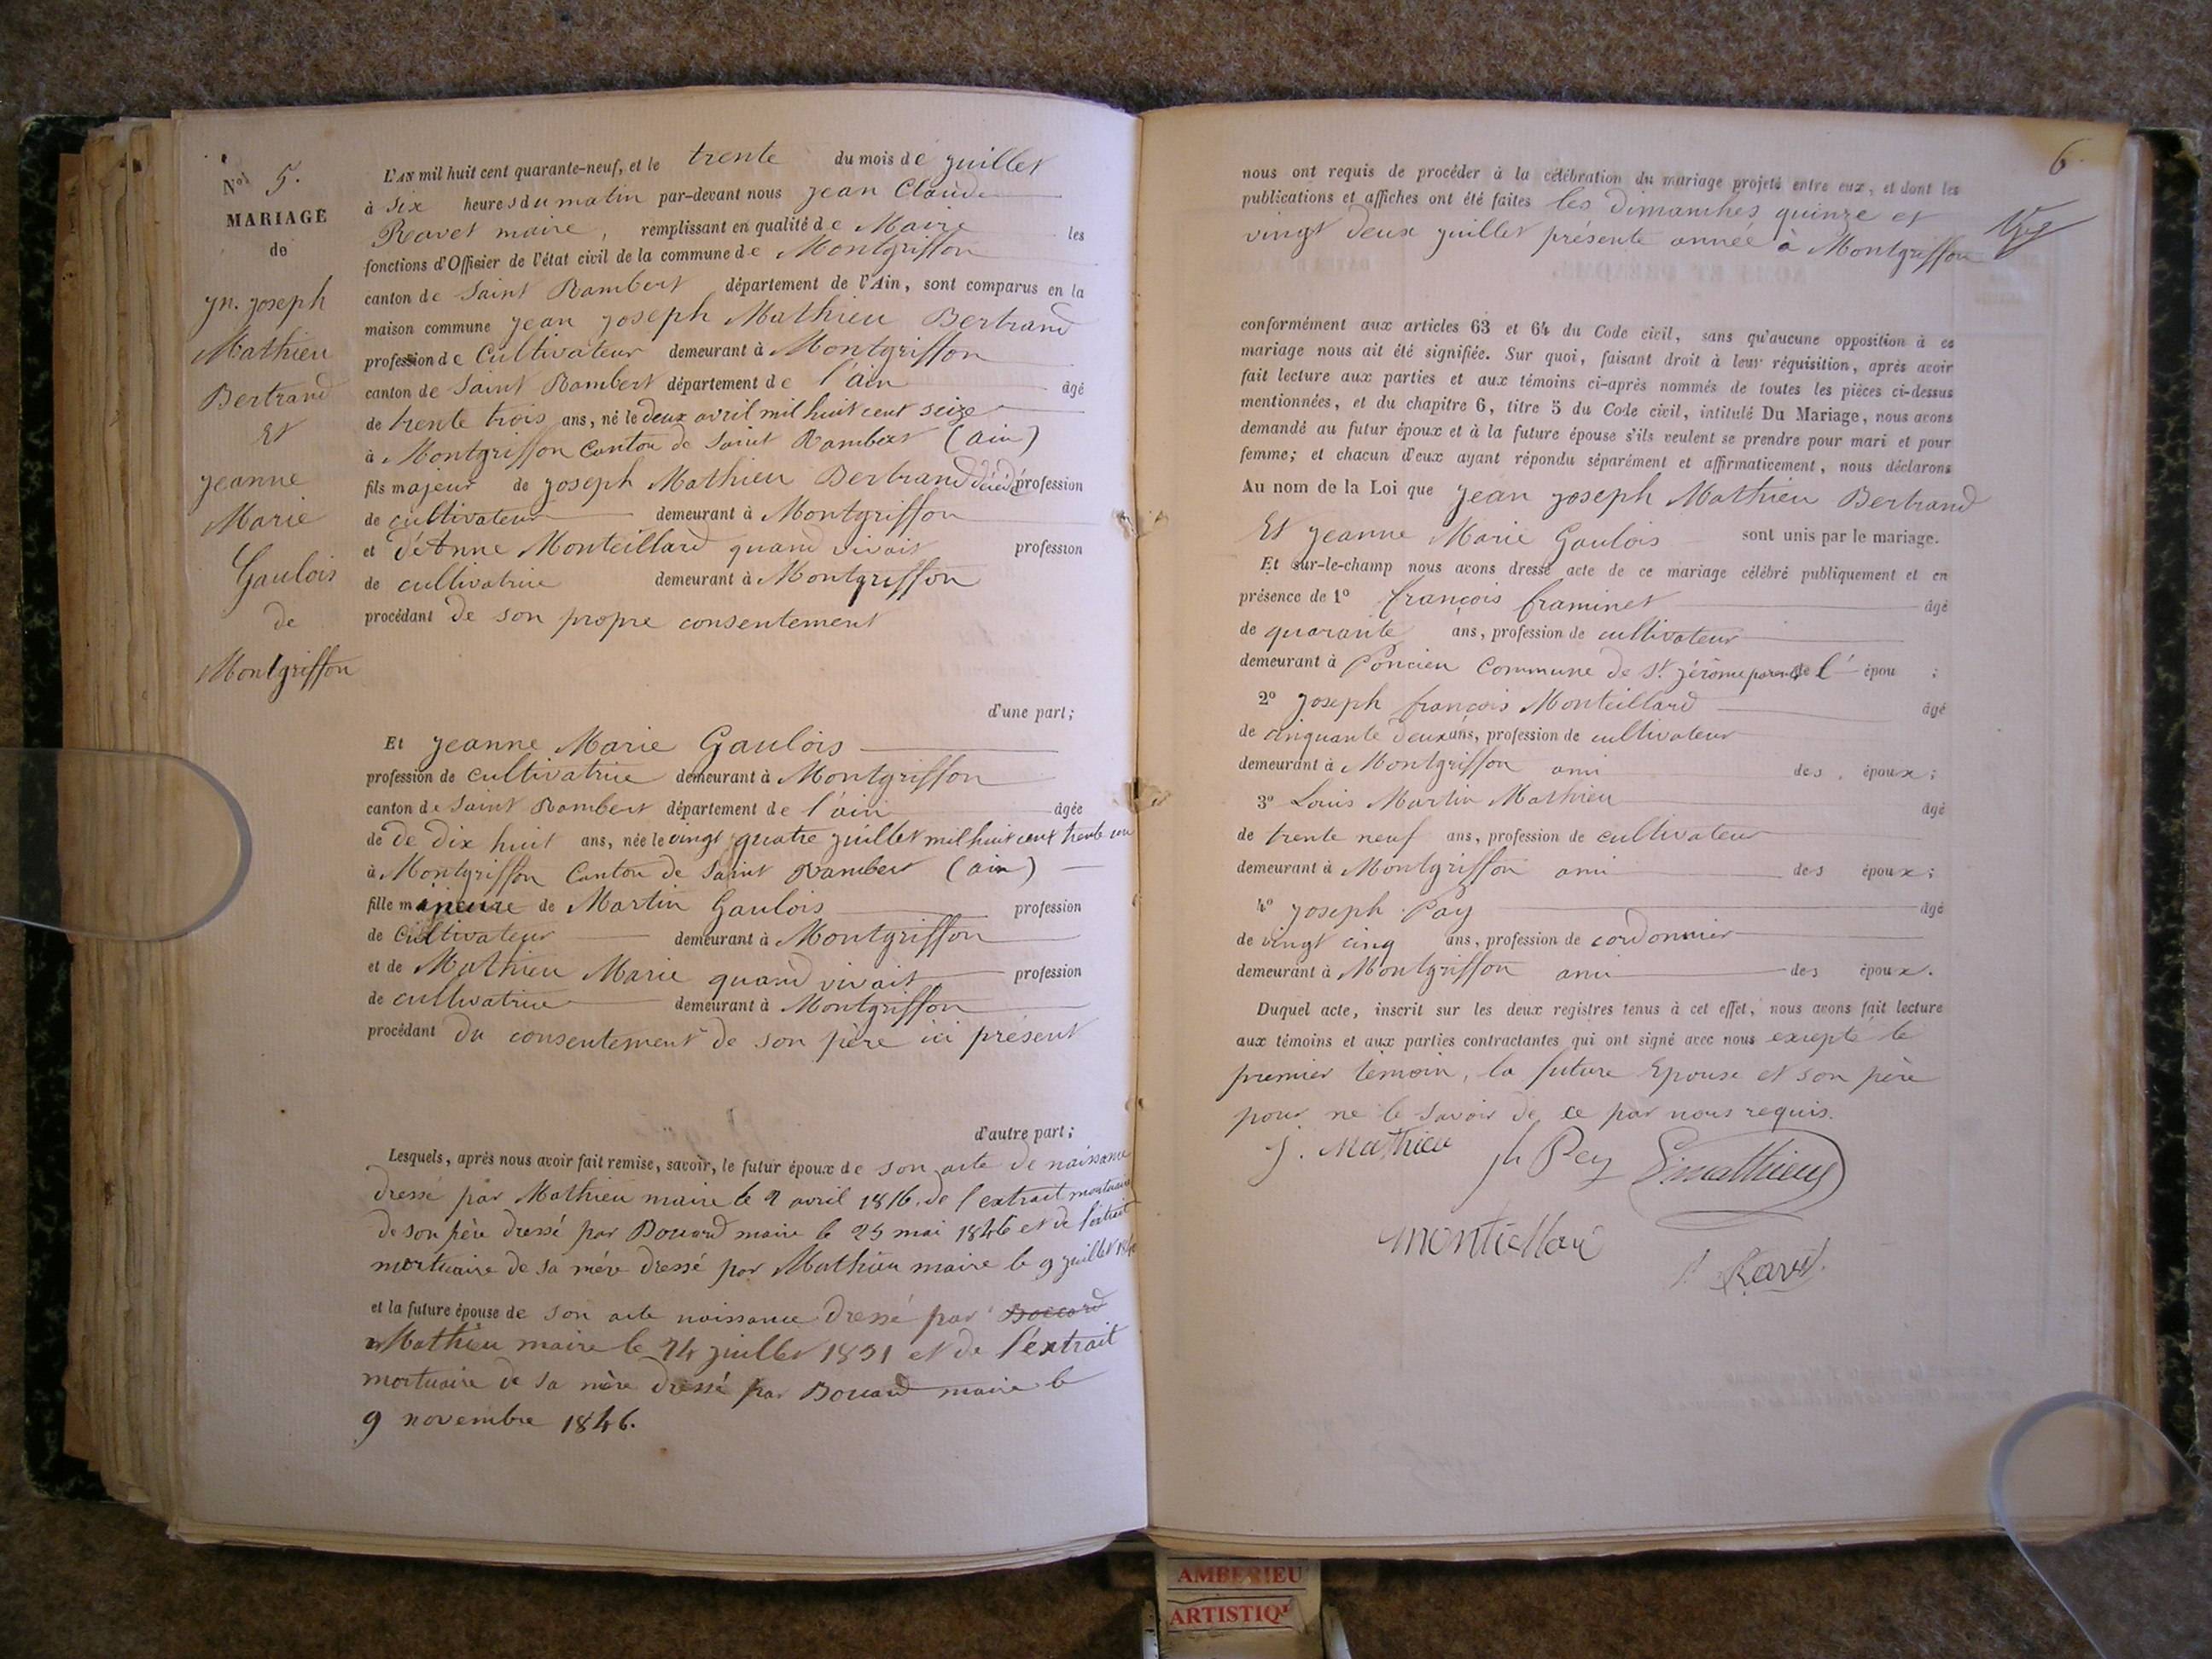 No 5.
MARIAGE
de
Jn. Joseph
Mathieu
Bertrand
Et
Jeanne
Marie
Gaulois
de
Montgriffon
L'AN mil huit cent quarante-neuf, et le trente du mois de Juillet
à six heures du matin par-devant nous Jean Claude
Ravet maire, remplissant en qualité de Maire les
fonctions d'Officier de l'état civil de la commune de Montgriffon
canton de Saint Rambert département de l'Ain, sont comparus en la
maison commune Jean Joseph Mathieu Bertrand
profession de Cultivateur demeurant à Montgriffon
canton de Saint Rambert département de l'ain âgé
de trente trois ans, né le deux avril mil huit cent seize
à Montgriffon Canton de Saint Rambert (ain)
fils majeur de Joseph Mathieu Bertrand décédé profession
de cultivateur demeurant à Montgriffon
et d'Anne Monteillard quand vivait profession
de cultivatrice demeurant à Montgriffon
procédant de son propre consentement
d'une part;
Et Jeanne Marie Gaulois
profession de cultivatrice demeurant à Montgriffon
canton de Saint Rambert département de l'ain âgée
de de dix huit ans, née le vingt quatre juillet mil huit cent trente un
à Montgriffon Canton de Saint Rambert (ain)
fille mineure de Martin Gaulois profession
de Cultivateur demeurant à Montgriffon
et de Mathieu Marie quand vivait profession
de cultivatrice demeurant à Montgriffon
procédant du consentement de son père ici présent
d'autre part;
Lesquels, après nous avoir fait remise, savoir, le futur époux de son acte de naissance
dressé par Mathieu maire le 2 avril 1816. de l'extrait mortuaire
de son père dressé par Bouard maire le 25 mai 1846 et de l'extrait
mortuaire de sa mère dressé par Mathieu maire le 9 juillet
et la future épouse de son acte naissance dressé par Boccard
Mathieu maire le 24 juillet 1831 et de l'extrait
mortuaire de sa mère dressé par Bouard maire le
9 novembre 1846.
6.
nous ont requis de procéder à la célébration du mariage projeté entre eux, et dont les
publications et affiches ont été faites les dimanches quinze et
vingt deux juillet présente année à Montgriffon
conformément aux articles 63 et 64 du Code civil, sans qu'aucune opposition à ce
mariage nous ait été signifiée. Sur quoi, faisant droit à leur réquisition, après avoir
fait lecture aux parties et aux témoins ci-après nommés de toutes les pièces ci-dessus
mentionnées, et du chapitre 6, titre 5 du Code civil, intitulé Du Mariage, nous avons
demandé au futur époux et à la future épouse s'ils veulent se prendre pour mari et pour
femme; et chacun d'eux ayant répondu séparément et affirmativement, nous déclarons
Au nom de la Loi que Jean Joseph Mathieu Bertrand
Et Jeanne Marie Gaulois sont unis par le mariage.
Et sur-le-champ nous avons dressé acte de ce mariage célébré publiquement et en
présence de 1º François Framinet âgé
de quarante ans, profession de cultivateur
demeurant à Poncieu Commune de St Jérôme parent de l' épou ;
2º Joseph françois Monteillard âgé
de cinquante deux ans, profession de cultivateur
demeurant à Montgriffon ami des époux;
3º Louis Martin Mathieu âgé
de trente neuf ans, profession de cultivateur
demeurant à Montgriffon ami des époux;
4º Joseph Pay âgé
de vingt cinq ans, profession de cordonnier
demeurant à Montgriffon ami des époux.
Duquel acte, inscrit sur les deux registres tenus à cet effet, nous avons fait lecture
aux témoins et aux parties contractantes qui ont signé avec nous excepté le
premier témoin, la future Epouse et son père
pour ne le savoir de ce par nous requis.
J. Mathieu jh Pey L. mathieu
monteillard
Ravet.
AMBERIEU
ARTISTIQ